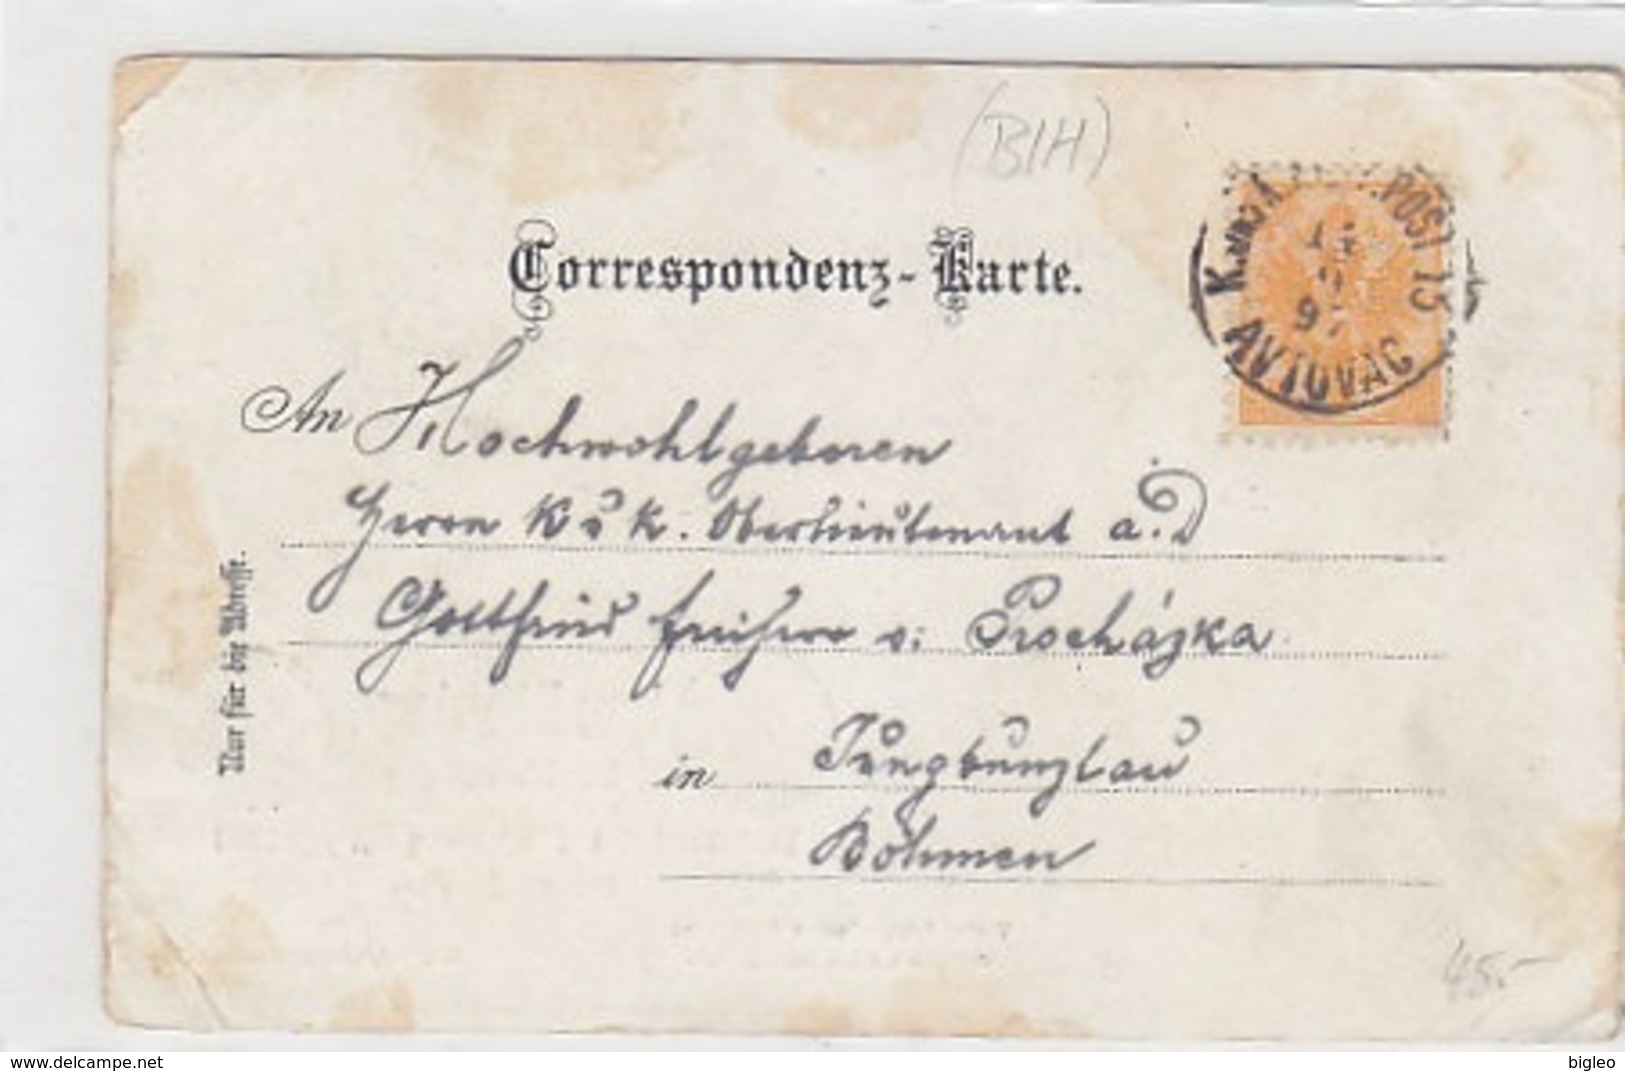 (BIH)
Correspondenz-Karte.
K. UND K. POST 15
97
AVTOVAC
An Hochwohlgeboren
Herrn K u k. Oberlieutenant a. D
Gottfried Freiherr v. Procházka
in Jungbunzlau
Böhmen
Nur für die Adresse.
45.-
www.delcampe.net
bigleo